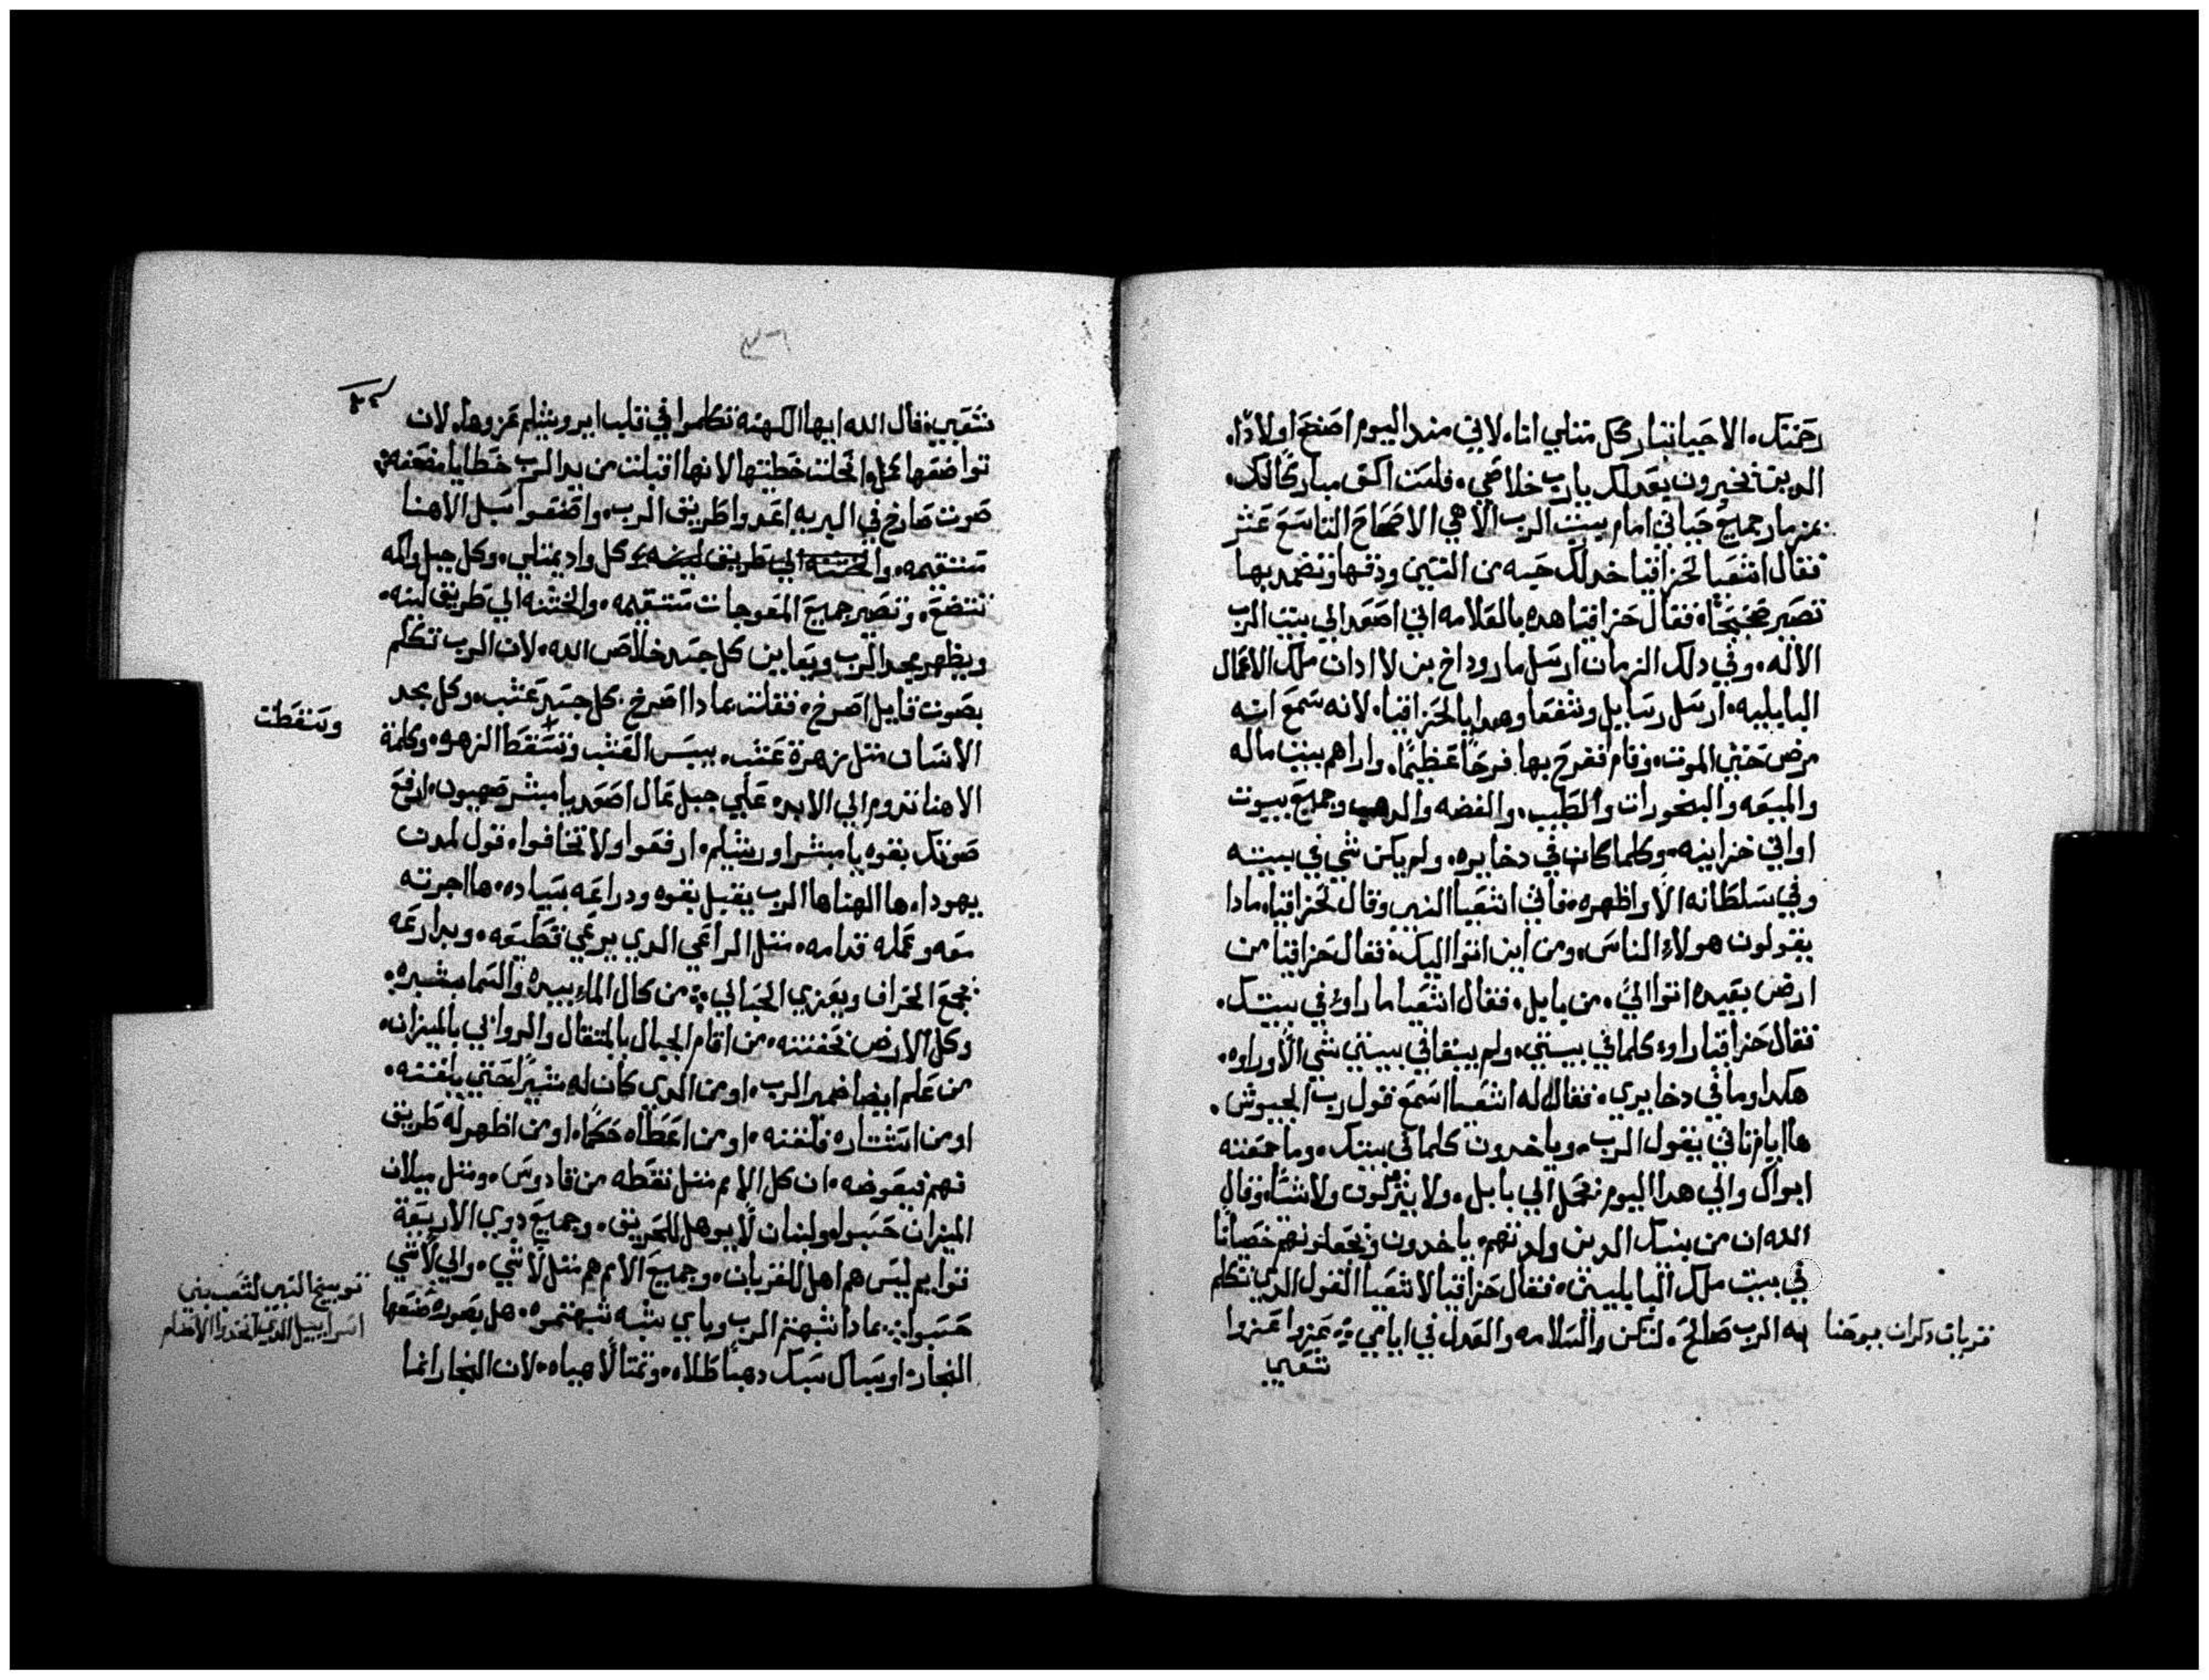 رحمتك. الاحيا تباركك مثلي انا. لاني مند اليوم اصنع اولادًا.
الدين يخبرون بعدلك يارب خلاصي. فلست اكف مباركًا لك.
بمزمار جميع حياتي امام بيت الرب الاهي الاصحاح التاسع عشر
فقال اشعيا لحزاقيا خد لك حبه من التين ودقها وتضمد بها
تصير صحيحًا. فقال حزاقيا هده بالعلامه اني اصعد الي بيت الرب
الاله. وفي دلك الزمان ارسل ماروداخ بن لاادان ملك الاعمال
البابليه. ارسل رسايل وشفعا وهدايا لحزاقيا. لانه سمع انه
مرض حتي الموت. وقام ففرح بها فرحًا عظيمًا. واراهم بيت ماله
والميعه والبخورات والطيب. والفضه والدهب وجميع بيوت
اواني خزاينه. وكلما كان في دخايره. ولم يكن شي في بيته
وفي سلطانه الا واظهره. فاتي اشعيا النبي وقال لحزاقيا. مادا
يقولون هولاء الناس. ومن اين اتوا اليك. فقال حزاقيا من
ارض بعيده اتوا اليَّ. من بابل. فقال اشعيا ما راوا في بيتك.
فقال حزاقيا راوا كلما في بيتي. ولم يبقا في بيتي شي الا وراوه.
هكدا وما في دخايري. فقال له اشعيا اسمع قول رب الجيوش.
ها ايام تاتي يقول الرب. وياخدون كلما في بيتك. وما جمعته
ابواك والي هدا اليوم تحمل الي بابل. ولا يتركون ولا شيًا. وقال
الله ان من بنيك الدين ولدتهم. ياخدون ويجعلونهم خصيانًا
في بيت ملك البابليين. فقال حزاقيا لاشعيا القول الدي تكلم
به الرب صالح. لتكن والسلامه والعدل في ايامي عزوا عزوا
تقريات دكران يوحنا
شعبي
٣٦
٣٤
شعبي. فقال الله ايها الكهنه تكلموا في قلب ايروشليم عزوها. لان
تواضعها كمل. انحلت خطيتها لانها اقبلت من يد الرب خطايا مضعفه
صوت صارخ في البريه اعدوا طريق الرب. واصنعوا سبل الاهنا
مستقيمه. والخشنه الي طريق لينه كل وادي يمتلي. وكل جبل واكمه
تتضع. وتصير جميع المعوجات مستقيمه. والخشنه الي طريق لينه.
ويظهر مجد الرب ويعاين كل جسد خلاص الله. لان الرب تكلم
بصوت قايل اصرخ. فقلت بمادا اصرخ. كل جسد عشب. وكل مجد
الانسان مثل زهرة عشب. يبس العشب وتسقط الزهره. وكلمة
وسقطت
الاهنا تدوم الي الابد. علي جبل عال اصعد يا مبشر صهيون. ارفع
صوتك بقوه يا مبشر اورشليم. ارفعوا ولا تخافوا. قول لمدن
يهودا. ها الهنا ها الرب يقبل بقوه ودراعه بسياده. ها اجرته
معه وعمله قدامه. مثل الراعي الدي يرعي قطيعه. وبدارعه
يجمع الخراف ويعزي الحبالي من كال الماء بيده والسما بشبره.
وكل الارض بحفنته. من اقام الجبال بالمتقال والروابي بالميزان.
من علم ايضا ضمير الرب. او من الدي كان له مشيرًا حتي يلقنه.
او من استشاره فلقنه. او من اعطاه حكمًا. او من اظهر له طريق
فهم فيعوضه. ان كل الامم مثل نقطه من قادوس. ومثل ميلان
الميزان حسبوا. ولبنان لا يوهل للحريق. وجميع دوي الاربعة
قوايم ليس هم اهل للقربان. وجميع الامم هم مثل لا شي. والي لا شي
حسبوا. بمادا شبهتم الرب وباي شبه شبهتموه. هل بصوره صنعها
النجار. او سباك سبك دهبًا طلاه. وتمتالًا هياه. لان النجار انما
توبيخ النبي لشعب بني
اسراييل الدي اتخدوا الاصنام